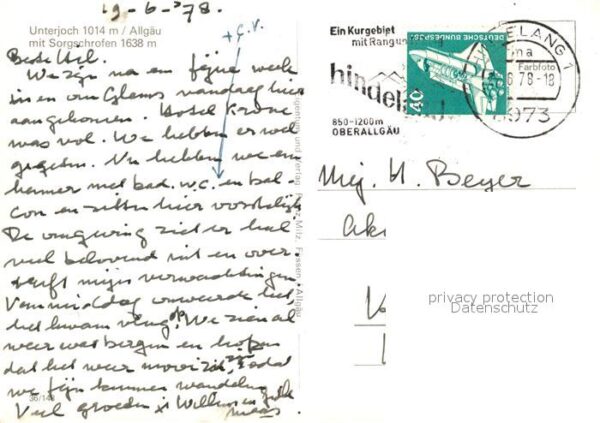 19-6-'78.
Unterjoch 1014 m / Allgäu
mit Sorgschrofen 1638 m
+ T.V.
Beste Uil.
We zijn na een fijne week
in en om Glarus vandaag hier
aangekomen. Hotel Krone
was vol. We hebben er wel
gegeten. Nu hebben we een
kamer met bad. w.c. en bal-
con en zitten hier vorstelijk
De omgeving ziet er heel
veel belovend uit en over-
treft mijn verwachtingen
Vanmiddag onweerde het,
het kwam vlug op. We zien al
weer wat bergen en hopen
dat het weer mooi zal zijn zodat
we fijn kunnen wandelen
Veel groeten Willem en
36/148
Verlag
Mitz, Füssen / Allgäu
Ein Kurgebiet
mit Rang und
hindel
850-1200m
OBERALLGÄU
DEUTSCHE BUNDESPOST
40
ELANG 1
Farbfoto
6.78-18
8973
Mej. H. Beyer
privacy protection
Datenschutz